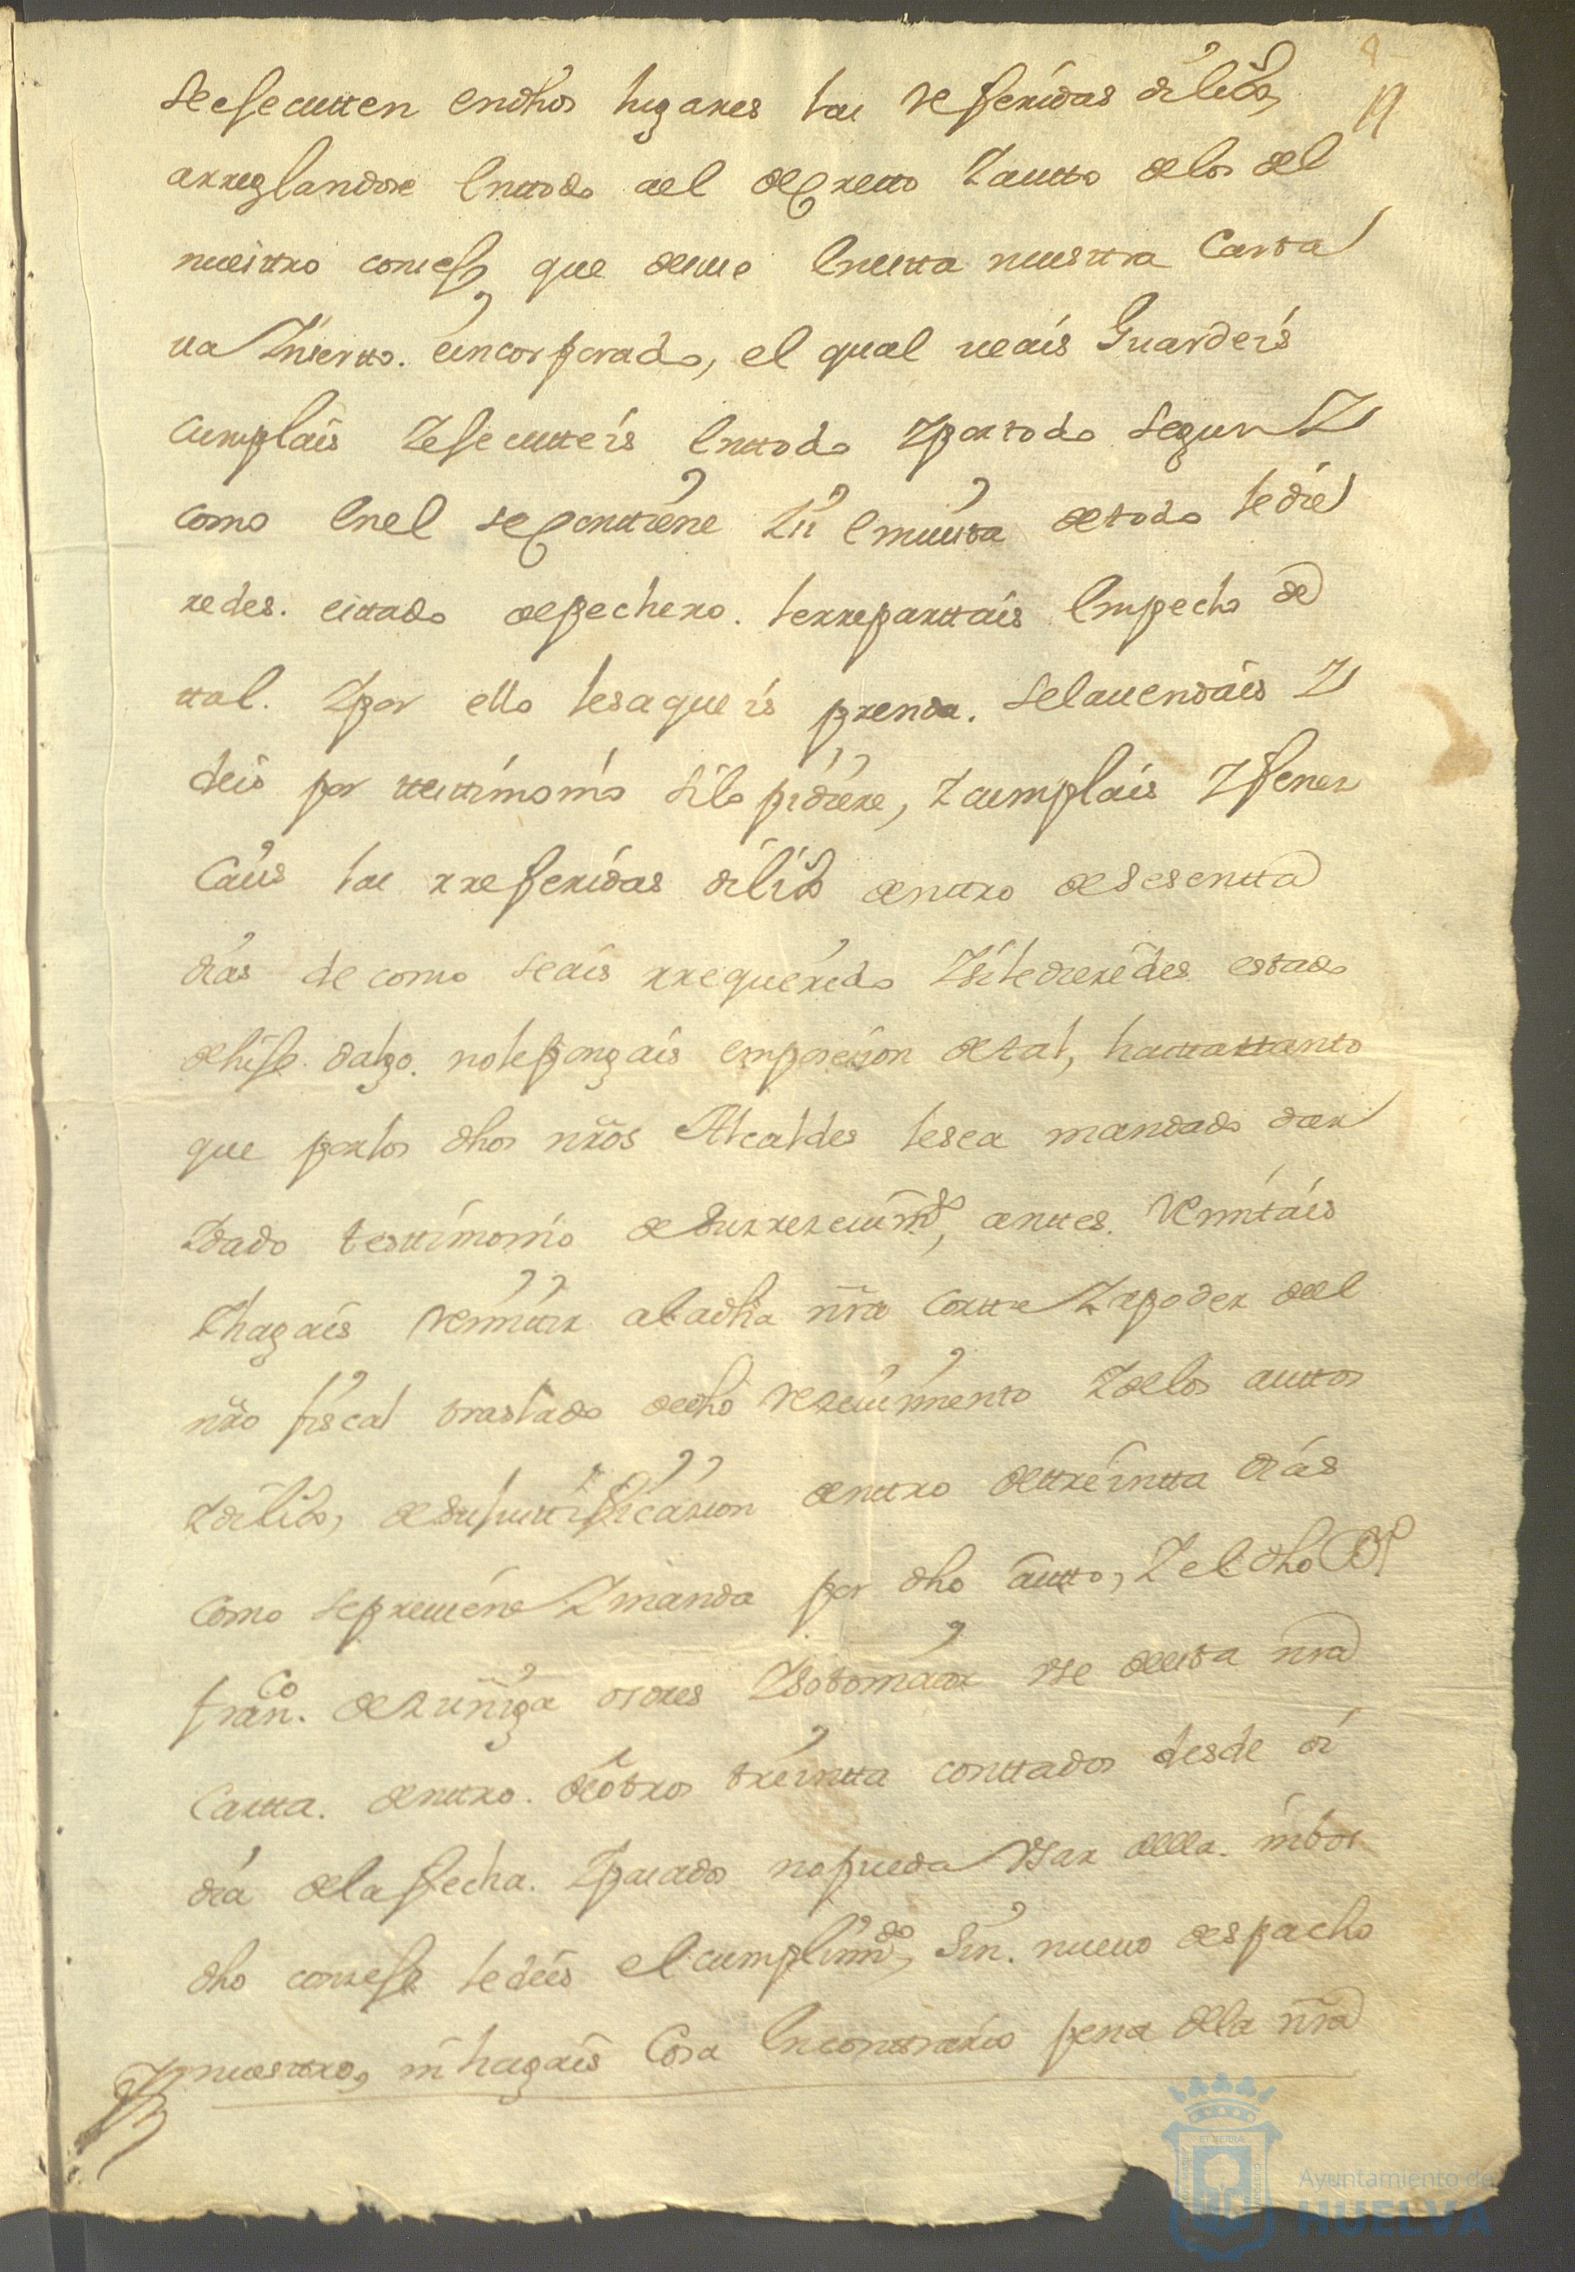 8
19
Seefecutten endhos lugares las Referidas dilixs,
arreglandose Enttodo ael decretto Yautto delos del
nuesttro consejo, que desuso Enestta nuesttra Cartta
va Ynserto. eincorporado, el qual veais Guardeis
cumplais Yefecutteis Enttodo Yportodo Segun Y
como Enel secontiene Ysi Envista detodo ledie
redes. esttado depechero. lerreparttais Enpecho de
ttal. Ypor ello lesaqueis prenda. Selavendais Y
deis por ttesttimonio Silo pidiere, Ycumplais Yfenez
Cais las rreferidas dilixs denttro desesentta
dias de como seais rrequerido Ysiledieredes estado
dehijo dalgo. nolepongais emposesion detal, hasttattanto
que porlos dhos nros Alcaldes lesea mandado dar
Ydado testtimonio desurrezeuimto, anttes. Remitais
Yhagais Remittir aladha nra Cortte Yapoder del
nro fiscal traslado dedho Rezeuimiento Ydelos auttos
Ydilixs, desujusttificazion denttro dettreintta dias
como sepreuiene Ymanda por dho autto, Y el dho Dn
franco. dezuñiga osores Ysotomaior use destta nra
Cartta. denttro. deotros treintta conttados desde oi
dia dela fecha. Ypasados nopueda Usar della. nibos
dho consejo ledeis el cumplimto, Sin. nueuo despacho
Ynuestro, nihagais Cosa Encontrario pena dela nra
Ayuntamiento de
HUELVA